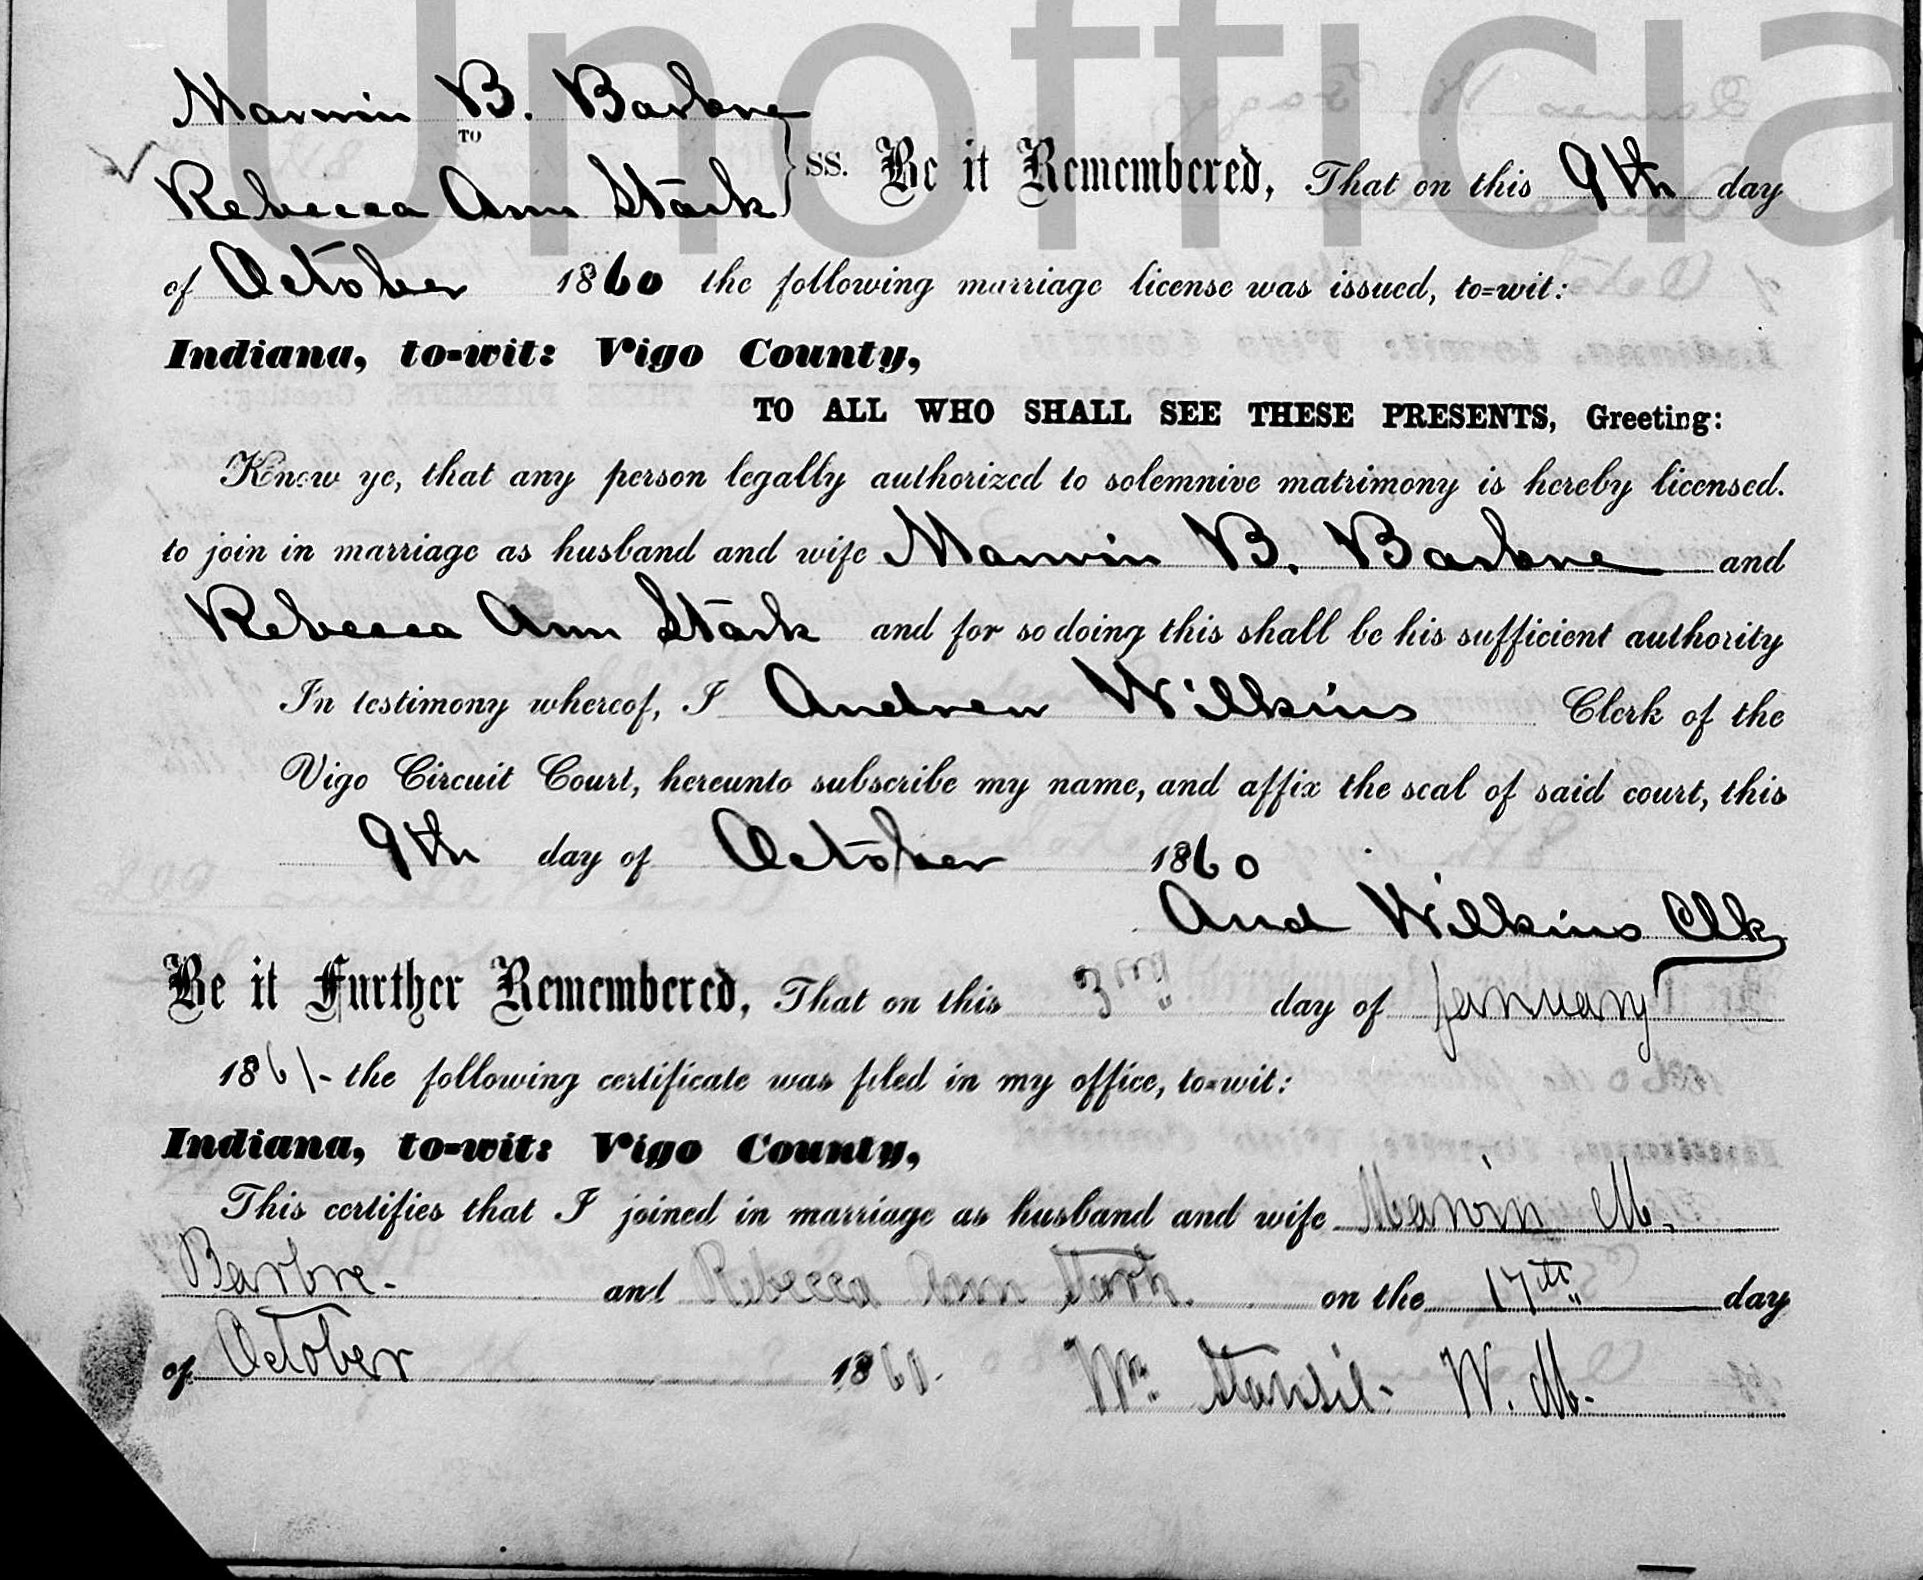 Unofficia
Marvin B. Barbre
TO
Rebecca Ann Stark } SS. Be it Remembered, That on this 9th day
of October 1860 the following marriage license was issued, to=wit:
Indiana, to=wit: Vigo County,
TO ALL WHO SHALL SEE THESE PRESENTS, Greeting:
Know ye, that any person legally authorized to solemnive matrimony is hereby licensed.
to join in marriage as husband and wife Marvin B. Barbre and
Rebecca Ann Stark and for so doing this shall be his sufficient authority
In testimony whereof, I Andrew Wilkins Clerk of the
Vigo Circuit Court, hereunto subscribe my name, and affix the seal of said court, this
9th day of October 1860
And Wilkins Clk
Be it Further Remembered, That on this 3rd day of January
1861- the following certificate was filed in my office, to=wit:
Indiana, to=wit: Vigo County,
This certifies that I joined in marriage as husband and wife Marvin M.
Barbre- and Rebecca Ann Stark. on the 17th day
of October 1860. Wm. Stansil- W. M.